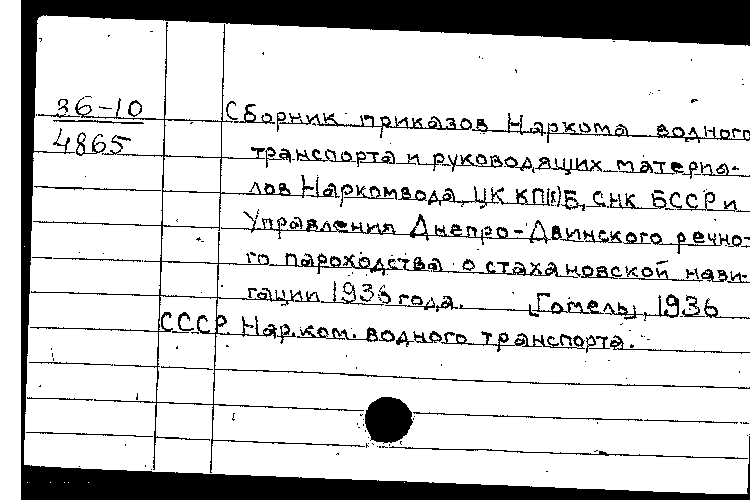 36-10
4865
Сборник приказов Наркома водного
транспорта и руководящих материа-
лов Наркомвода, ЦК КП(б)Б, СНК БССР и
Управления Днепро-Двинского речно-
го пароходства о стахановской нави-
гации 1936 года. [Гомель], 1936
СССР. Нар.ком. водного транспорта.